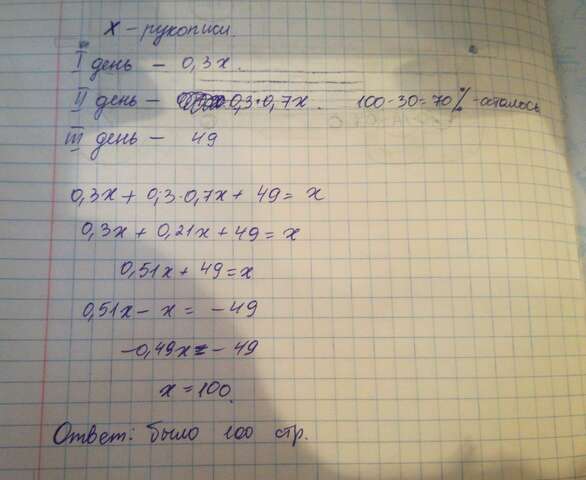 x - рукописи.
I день - 0,3x.
II день - 0,3·0,7x. 100-30=70% - осталось
III день - 49
0,3x + 0,3·0,7x + 49 = x
0,3x + 0,21x + 49 = x
0,51x + 49 = x
0,51x - x = -49
-0,49x = -49
x = 100.
Ответ: было 100 стр.